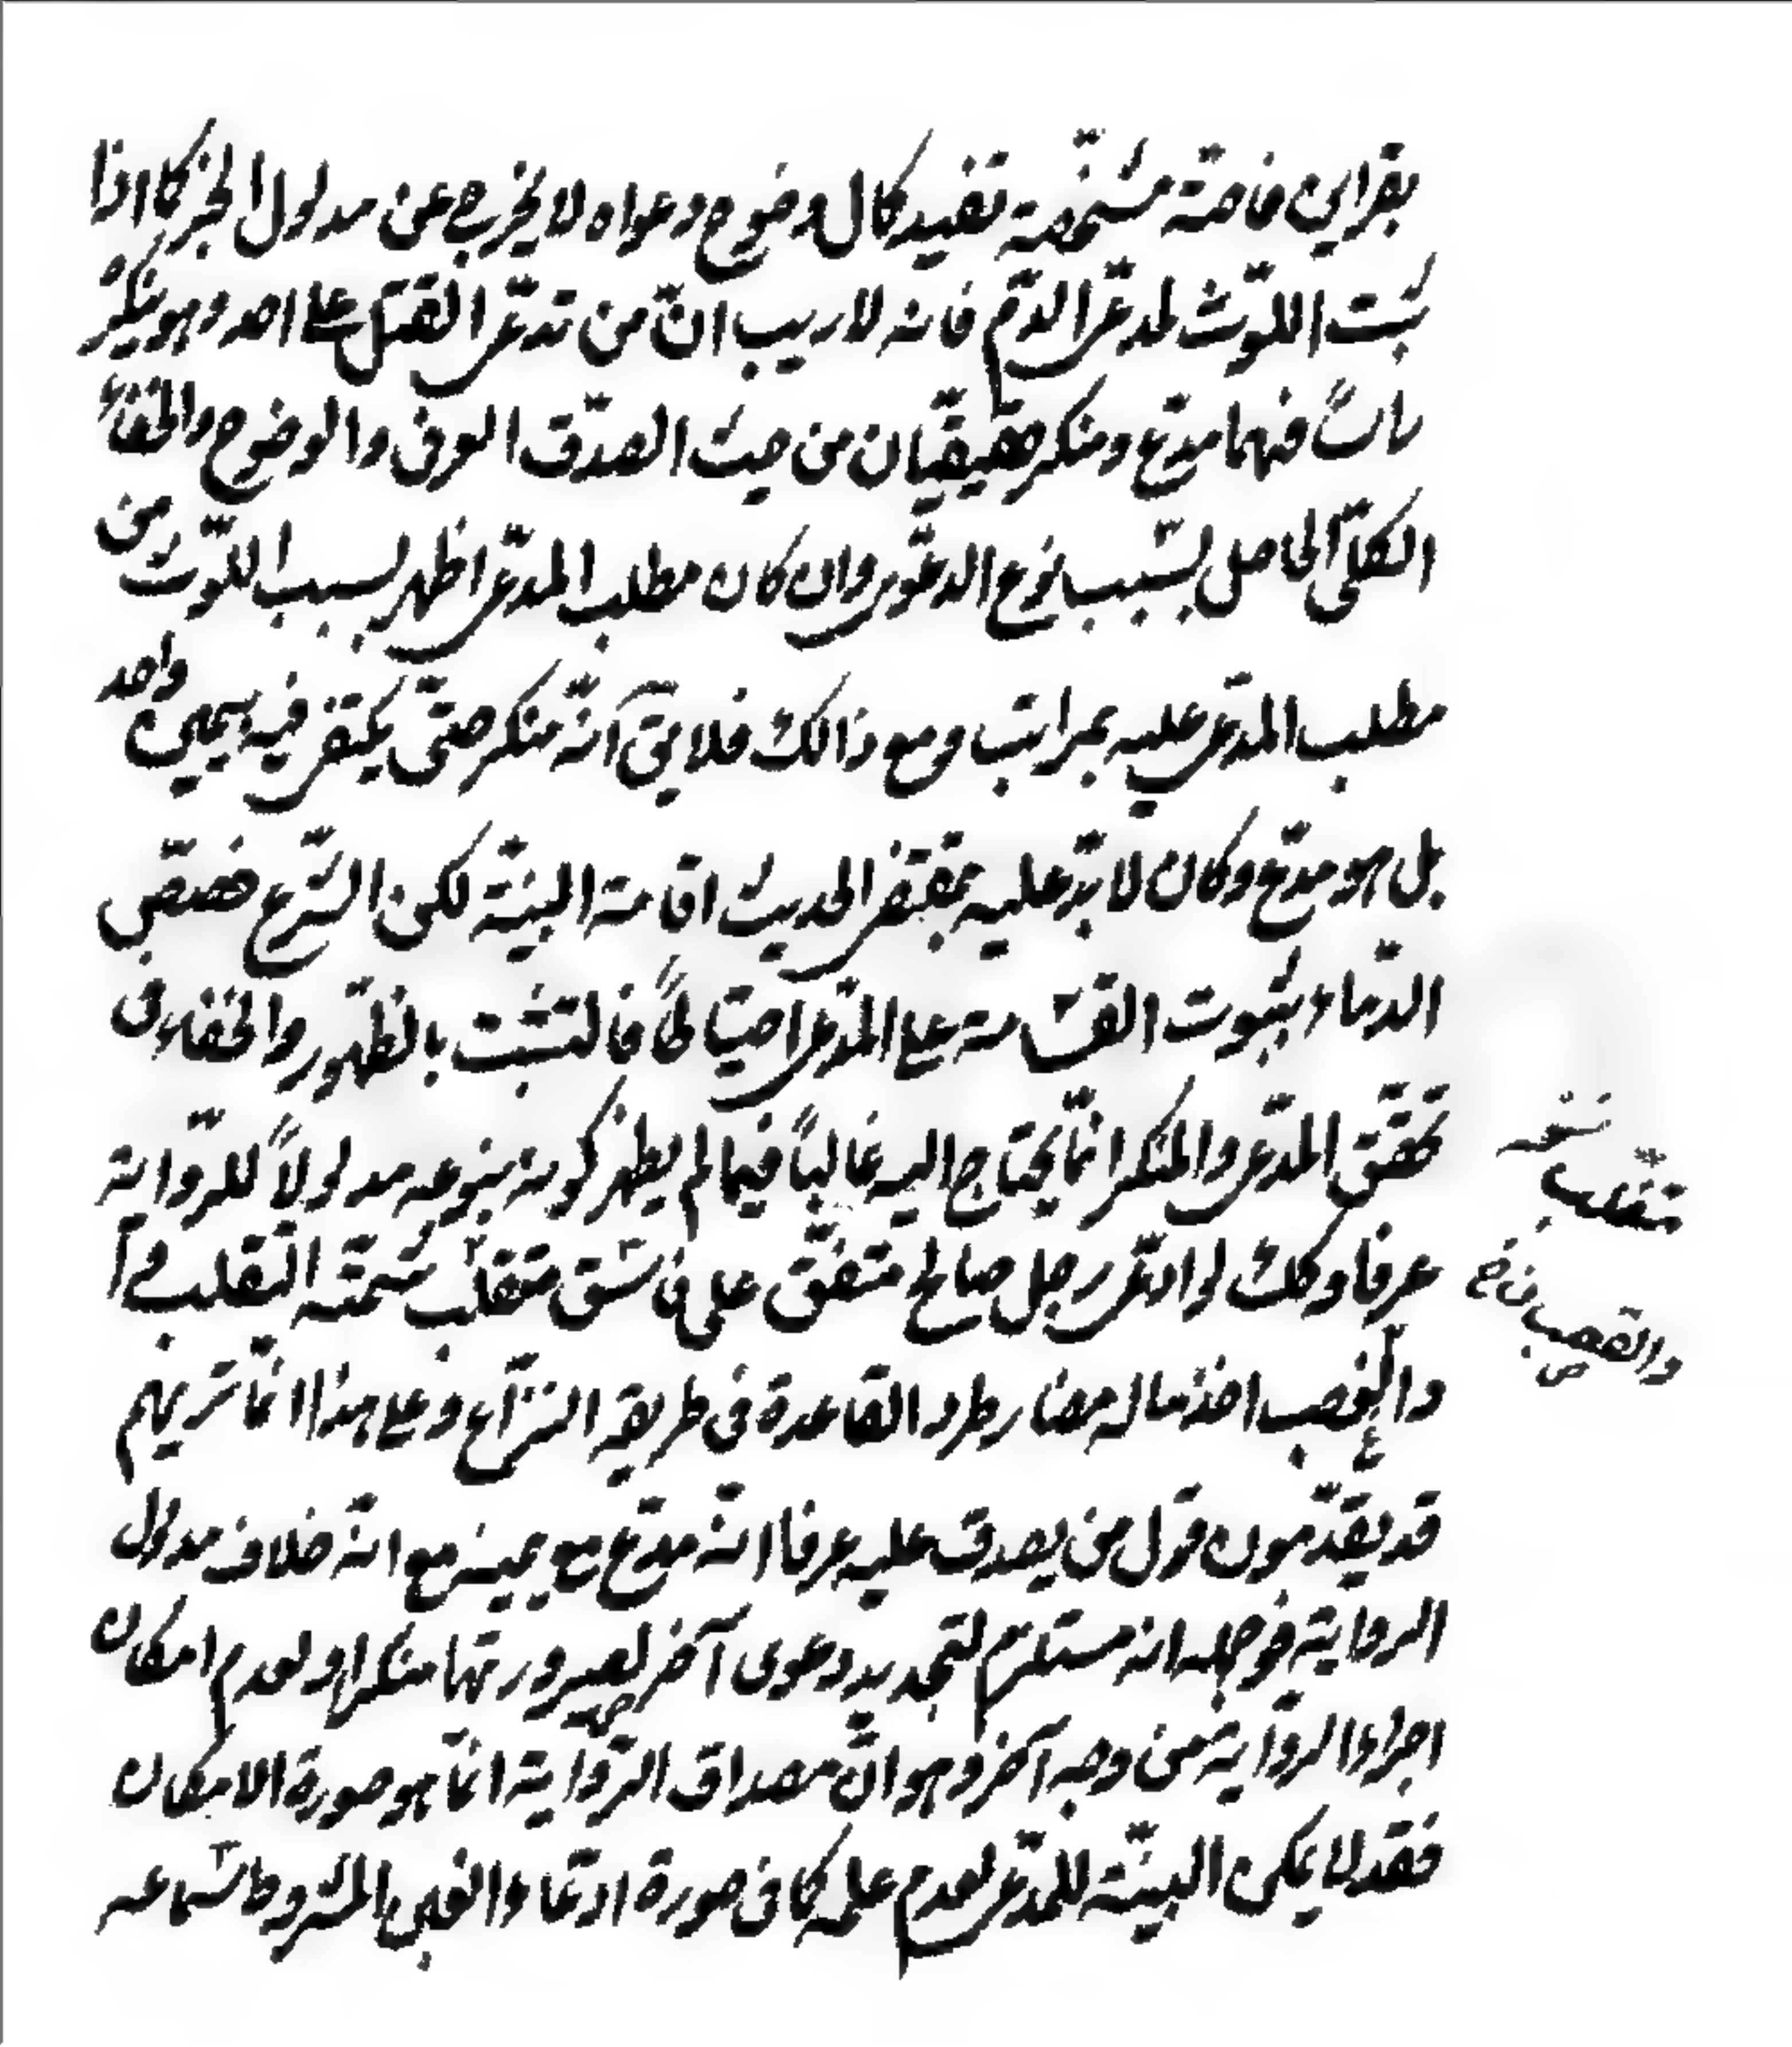 بقراین خاصّة مشخّصة تفید کمال وضوح دعواه لا یخرج عن مدلول الخبر کما اذا
ثبت اللوّث لمدّعی الدّم فانه لا ریب انّ من تدعّی القتل علی احد وهو ینکره
راساً فهما مدّع ومنکر حقیقیّان من حیث الصدّق العرفی والوضوح والخفاء
الکلّی الحاصل بسّبب نوع الدعّوی وان کان مطلب المدّعی اظهر بسبب اللوّث من
مطلب المدّعی علیه بمراتب ومع ذالک فلا یق آنّه منکر حتّی یکتفی فیه بیمین واحد
بل هو مدّع وکان لا بدّ علیه بمقتضی الحدیث اقامة البیّنة لکن الشّرع خصّص
الدّماء بثبوت القسّامة علی المدّعی احتیاطاً فالتشبث بالظّهور والخفاء فی
تحقّق المدّعی والمنکر انّما یحتاج الیه غالباً فیما لم یظهر کونه بنوعه مدلولاً للرّوایة
عرفا وکک لو ادعّی رجل صالح متّقی علی فاسّق متقلّب شیمته التقلب فی
والغصب اخذ ماله مضار طرد القاعدة فی طریقه النزّاع وعلی هذا انّما تریهم
قد یقدّمون قول من یصدق علیه عرفا انّه مدّع مع یمینه مع انّه خلاف مدلول
الروایة فوجهه انه مستلزم لتجدید دعوی آخر لصیرورتها منکرا ولعدم امکان
اجراء الروّایة من وجه آخر وهو انّ مصداق الرّوایة انّما هو صورة الامکان
فقد لا یمکن البیّنة للمدّعی لعدم علمه کما فی صورة ادعّاء الغبن المشروط سماعه
نسخه
متقلب
والقصب ن خ